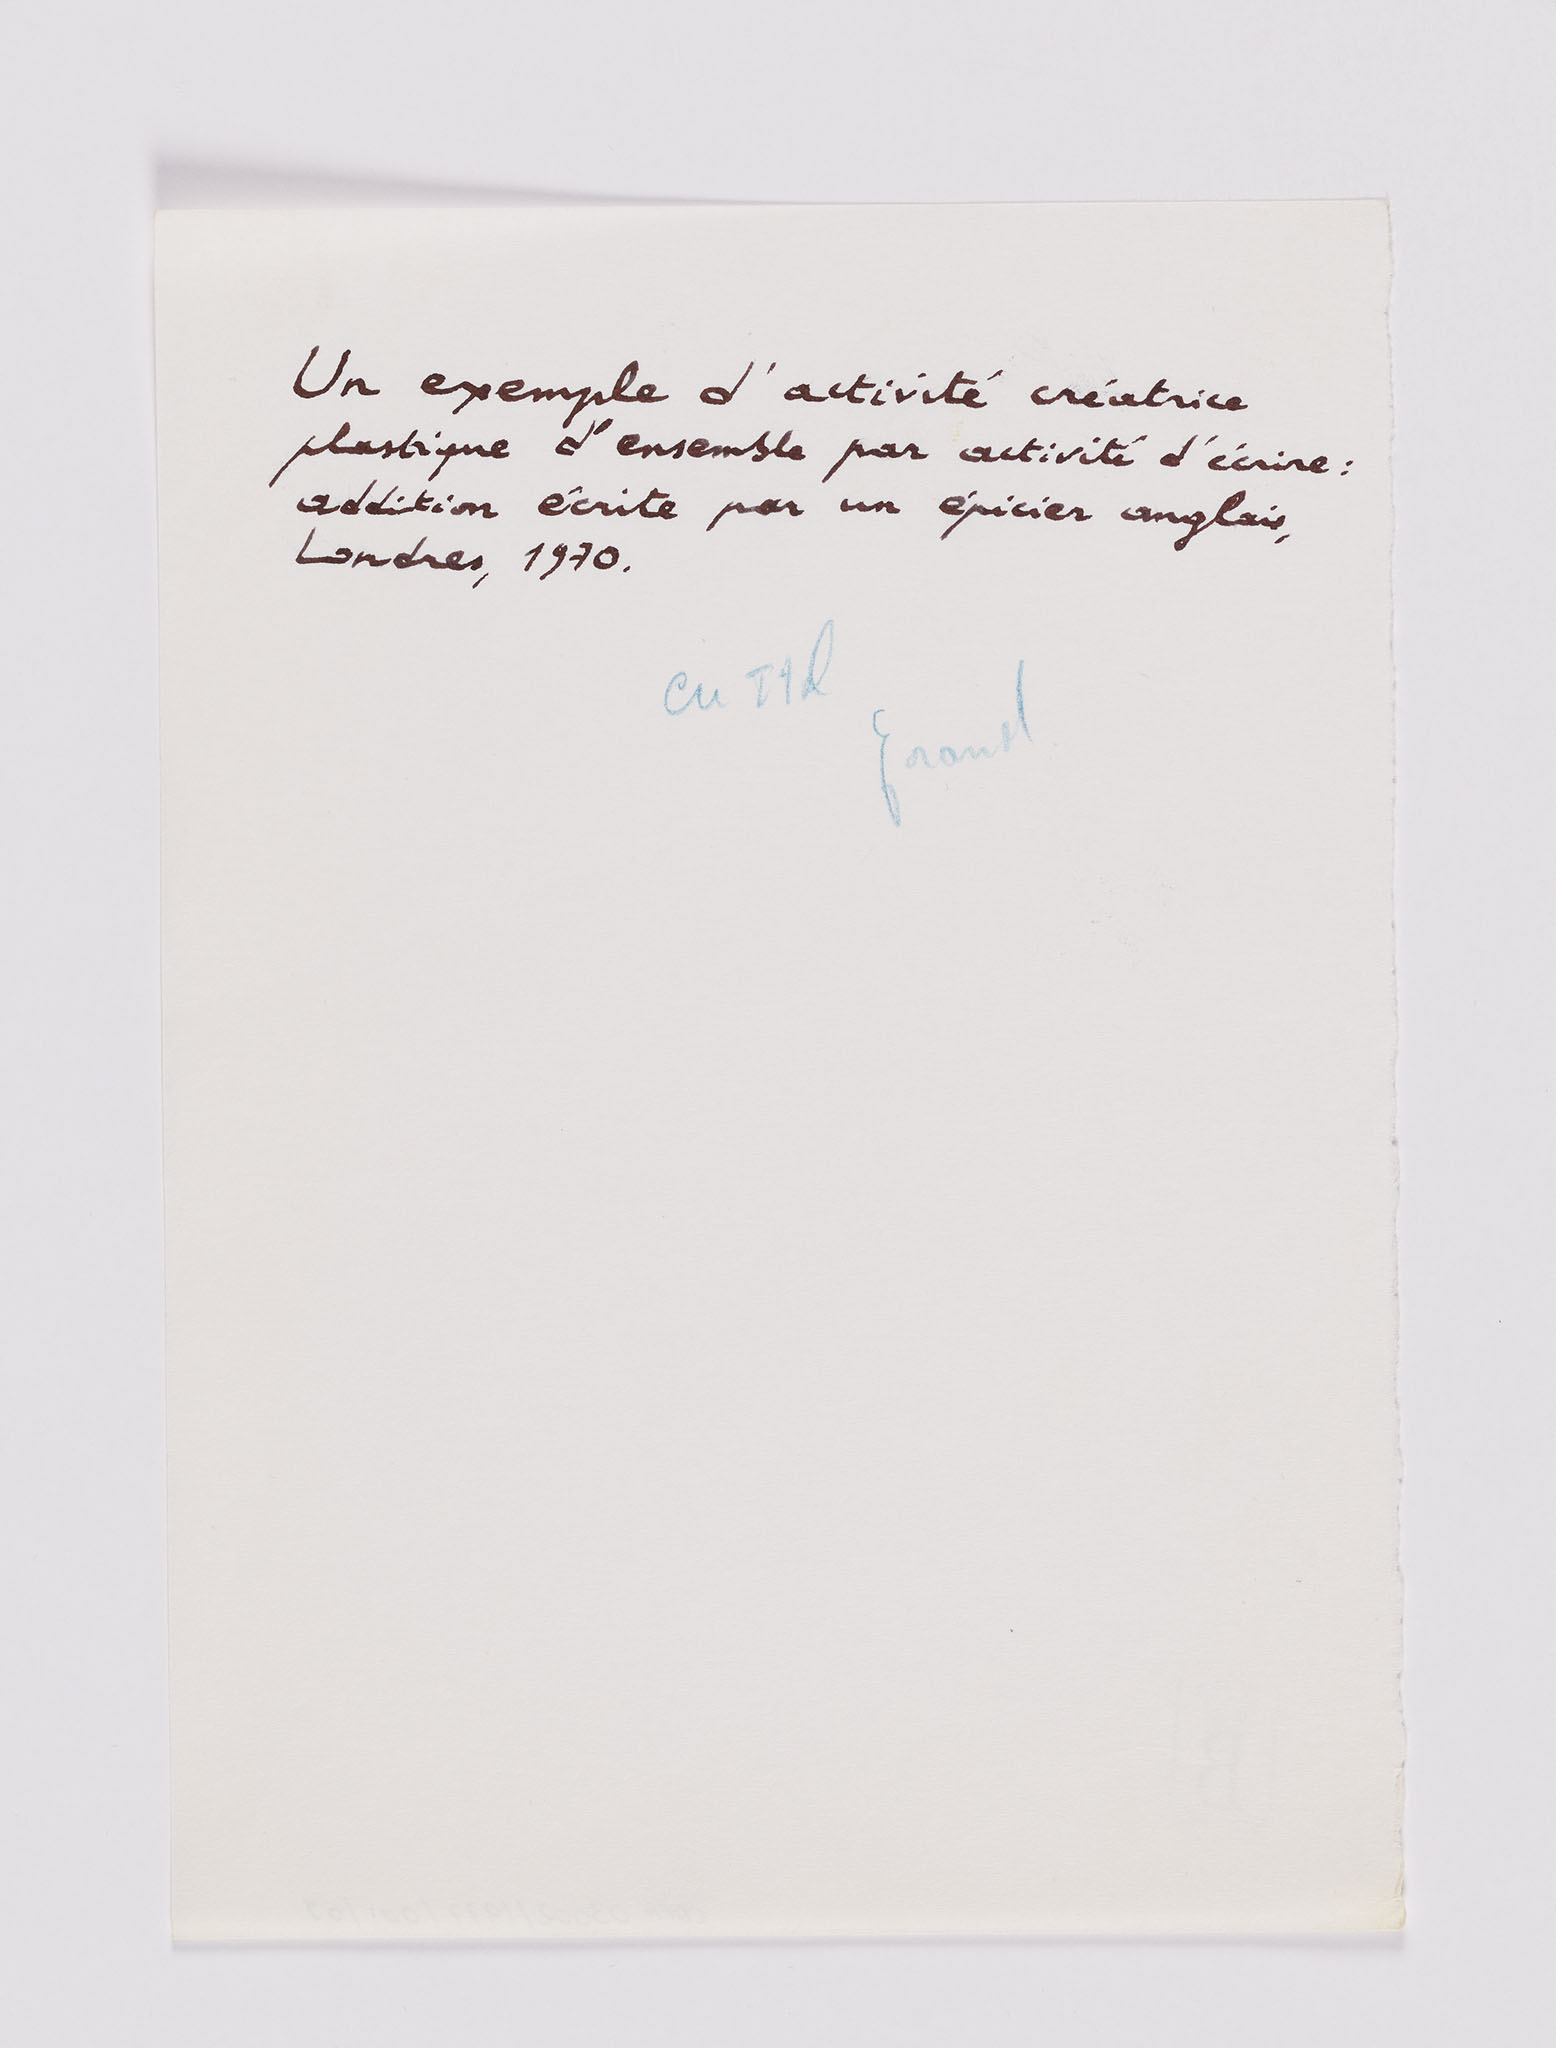 Un exemple d'activité créatrice
plastique d'ensemble par activité d'écrire:
addition écrite par un épicier anglais,
Londres, 1970.